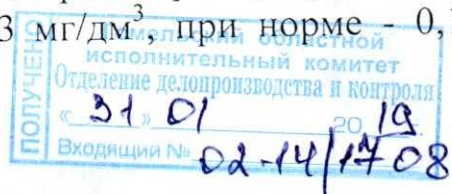 3 мг/дм³, при норме - 0,
ПОЛУЧЕНО
Гомельский областной
исполнительный комитет
Отделение делопроизводства и контроля
«31» 01 2019
Входящий № 02-14/1708